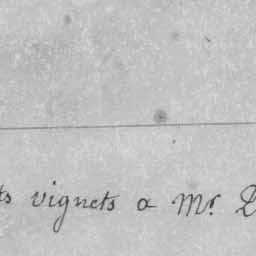 ts vignets a Mr. D